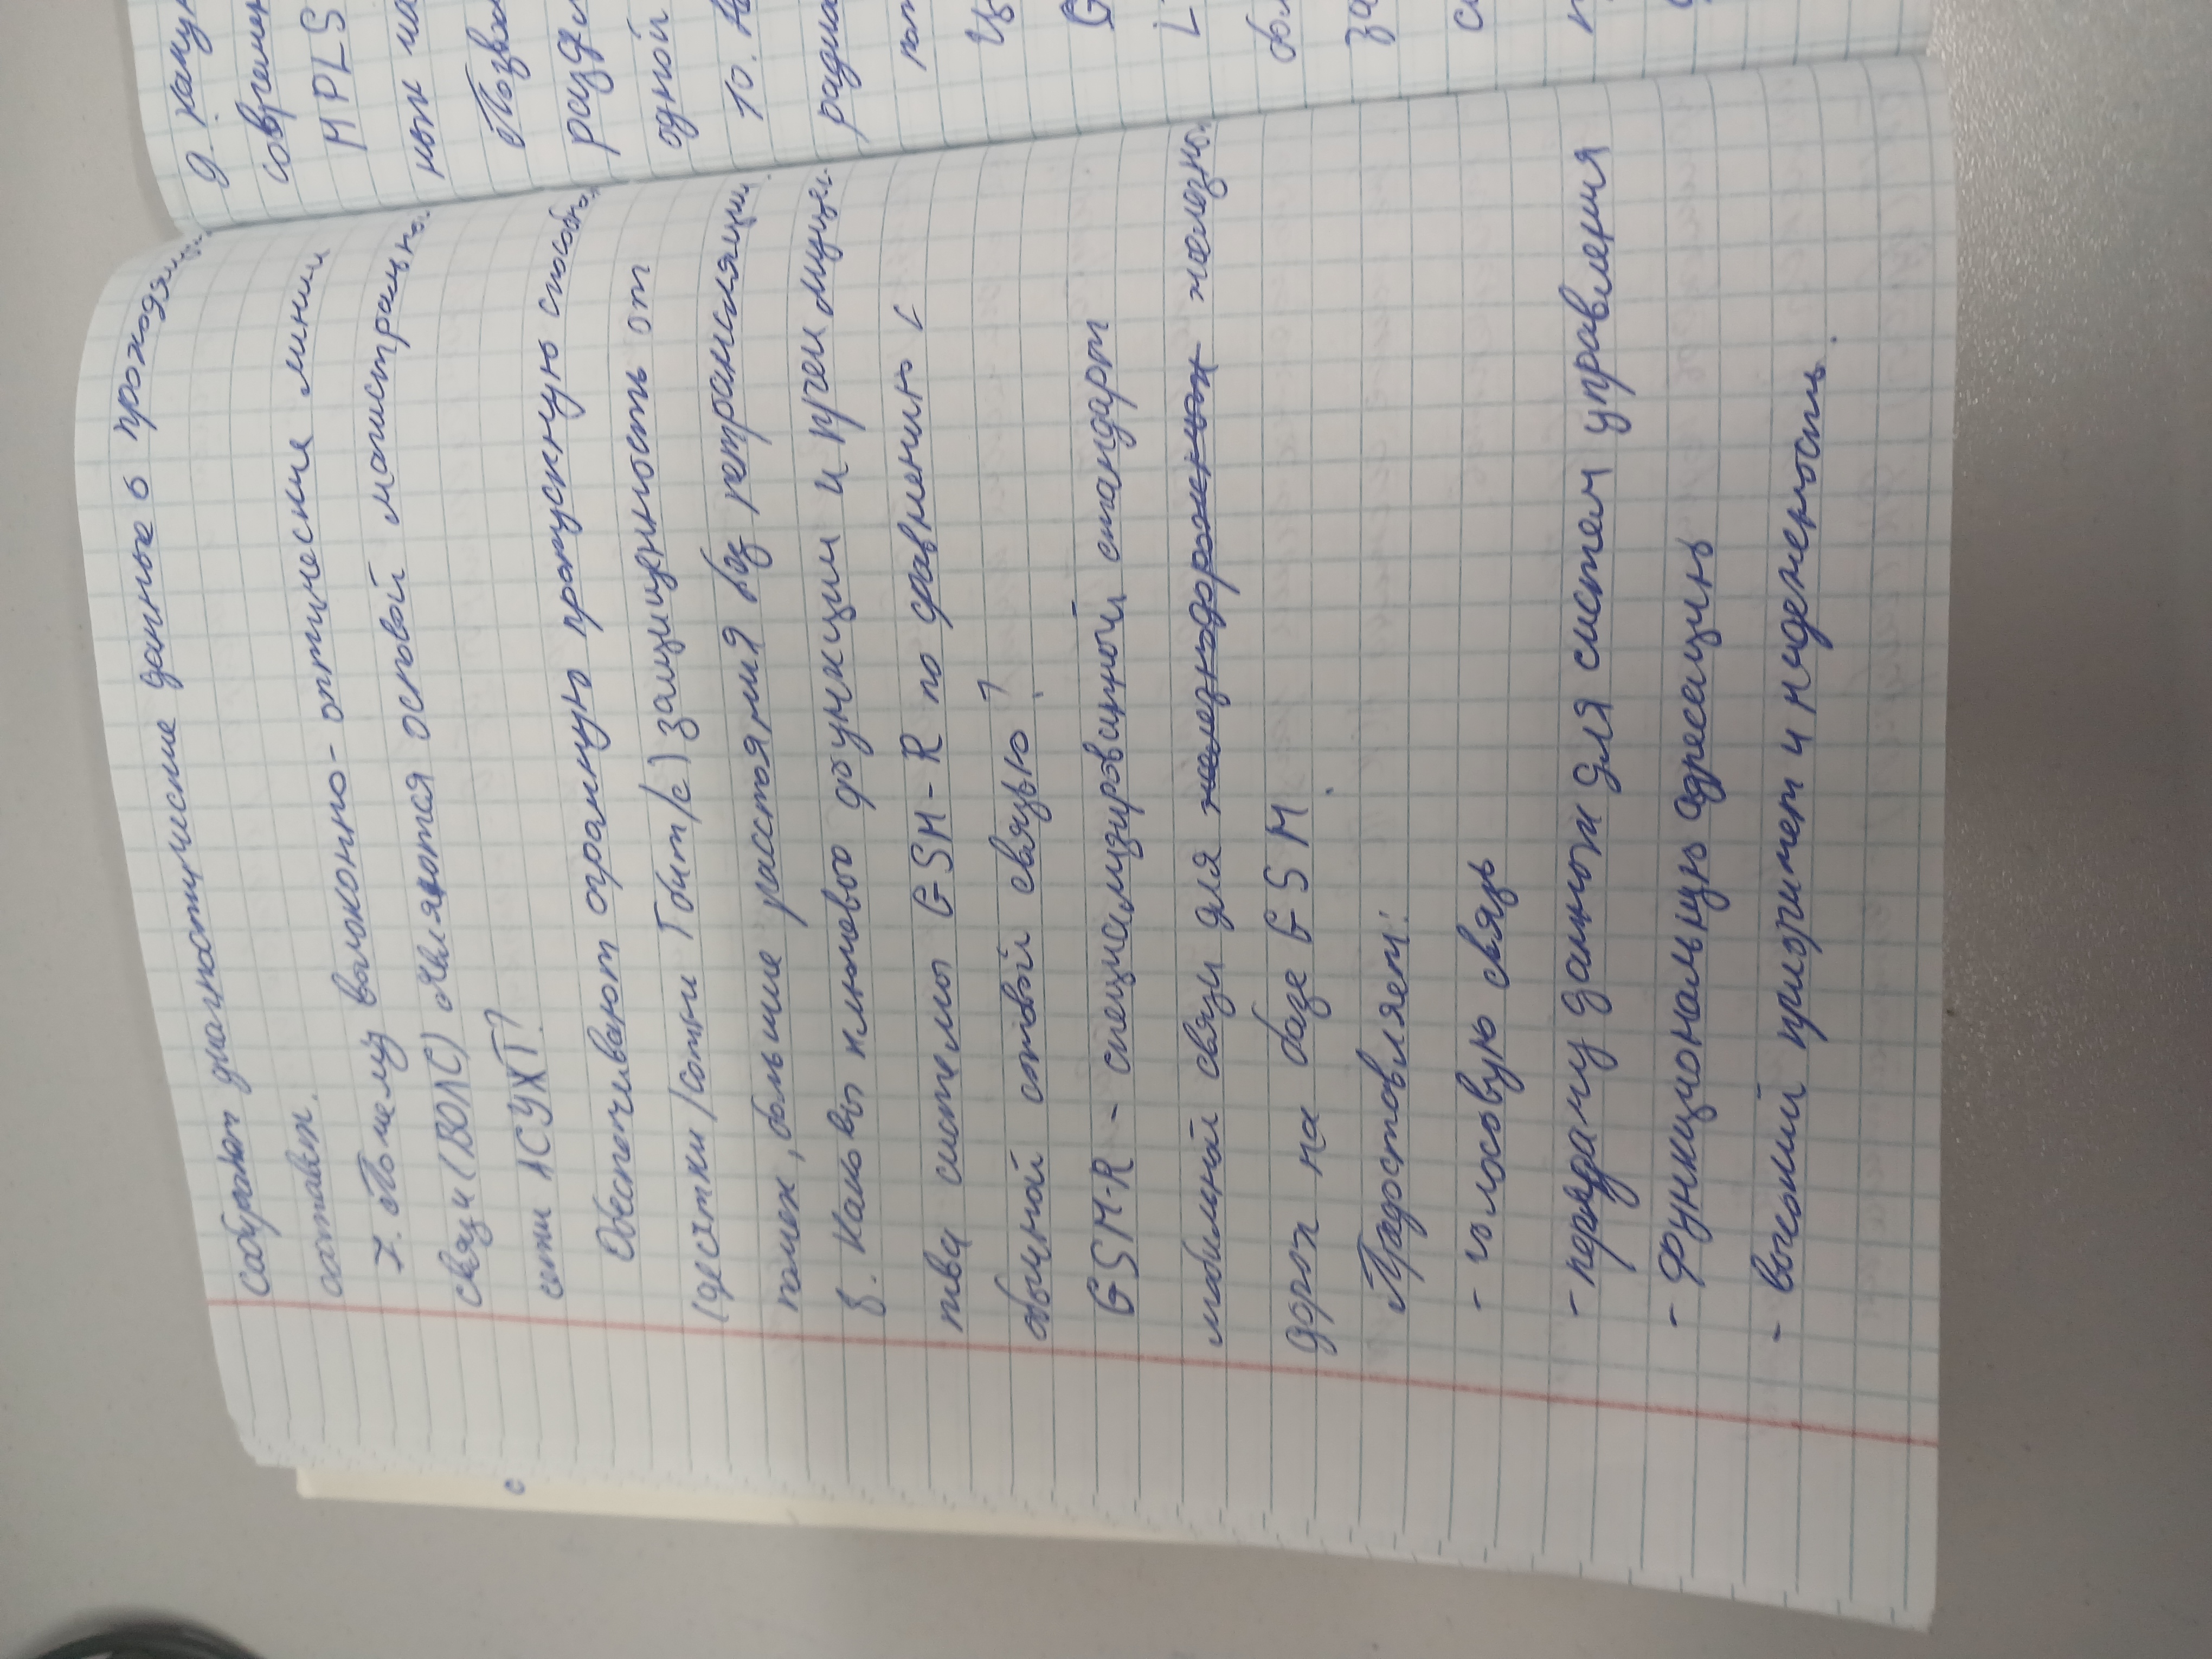 собирают диагностические данные о проходящих
составах.
7. Почему волоконно-оптические линии
связи (ВОЛС) являются основой магистрально
сети АСУЖТ?
Обеспечивают огромную пропускную способно
(десятки/сотни Гбит/с) защищенность от
помех, большие расстояния без ретрансляции.
8. Каковы ключевого функции и преимуще
тва системы GSM-R по сравнению с
обычной сотовой связью?
GSM-R - специализировщной стандарт
мобильной связи для железнодорожных железно
дорог на базе GSM.
Предоставляет:
- голосовую связь
- передачу данных для систем управления
- функциональную адресацию
- высокий приоритет и надежность.
9. Каку
совреме
MPLS
ных ма
Позвол
раздел
одной
10.
радио